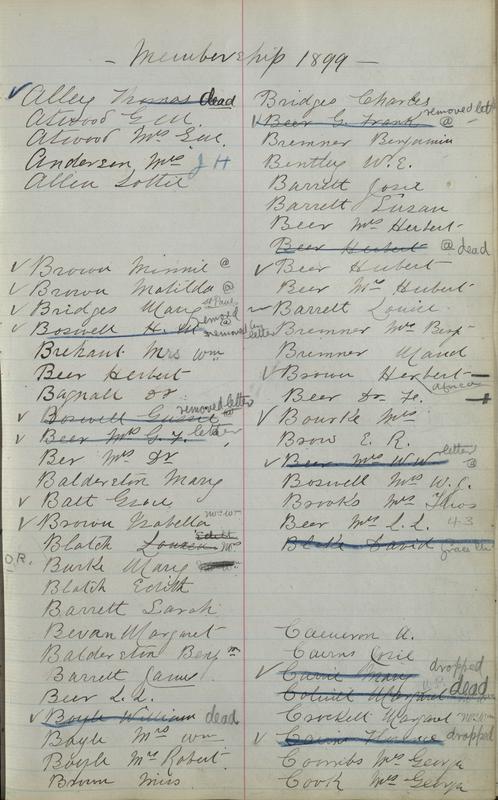 - Membership 1899 -
Alley Thomas dead
Atwood G.W.
Atwood Mrs G.W.
Anderson Mrs J H
Allen Lottie
Brown Minnie @
Brown Matilda @
Bridges Mary
Boswell H. removed by letter
Brehaut Mrs Wm
Beer Herbert
Bagnall Dr
Boswell Gussie removed letter
Beer Mrs G. F. letter
Ber Mrs Dr
Balderston Mary
Batt Grace
Brown Isabella
Blatch Louisa Mrs
O.R. Burke Mary
Blatch Edith
Barrett Sarah
Bevan Margaret
Balderston Benj m
Barrett James
Beer L.L.
Boyle William dead
Boyle Mrs Wm
Boyle Mrs Robert
Brown Miss
Bridges Charles
Beer G. Frank removed lett @
Bremner Benjamin
Bentley W.E.
Barrett Josie
Barrett Susan
Beer Mrs Herbert
Beer Herbert @ dead
Beer Hubert
Beer Mrs Hubert
Barrett Louise
Bremner Mrs Benj
Bremner Maud
Brown Herbert
Beer Dr. Fe. Africa
Bourke Mrs
Brow E. R.
Beer Mrs W.W. letter @
Boswell Mrs W.C.
Brooks Mrs Thos
Beer Mrs L.L. 43
Blake David Grace Ch
Cameron A.
Cairns Josie
Cavil Mary dropped
Margaret dead
Crockett Margaret
Cairns Florence dropped
Coombs Mrs George
Cook Mrs George